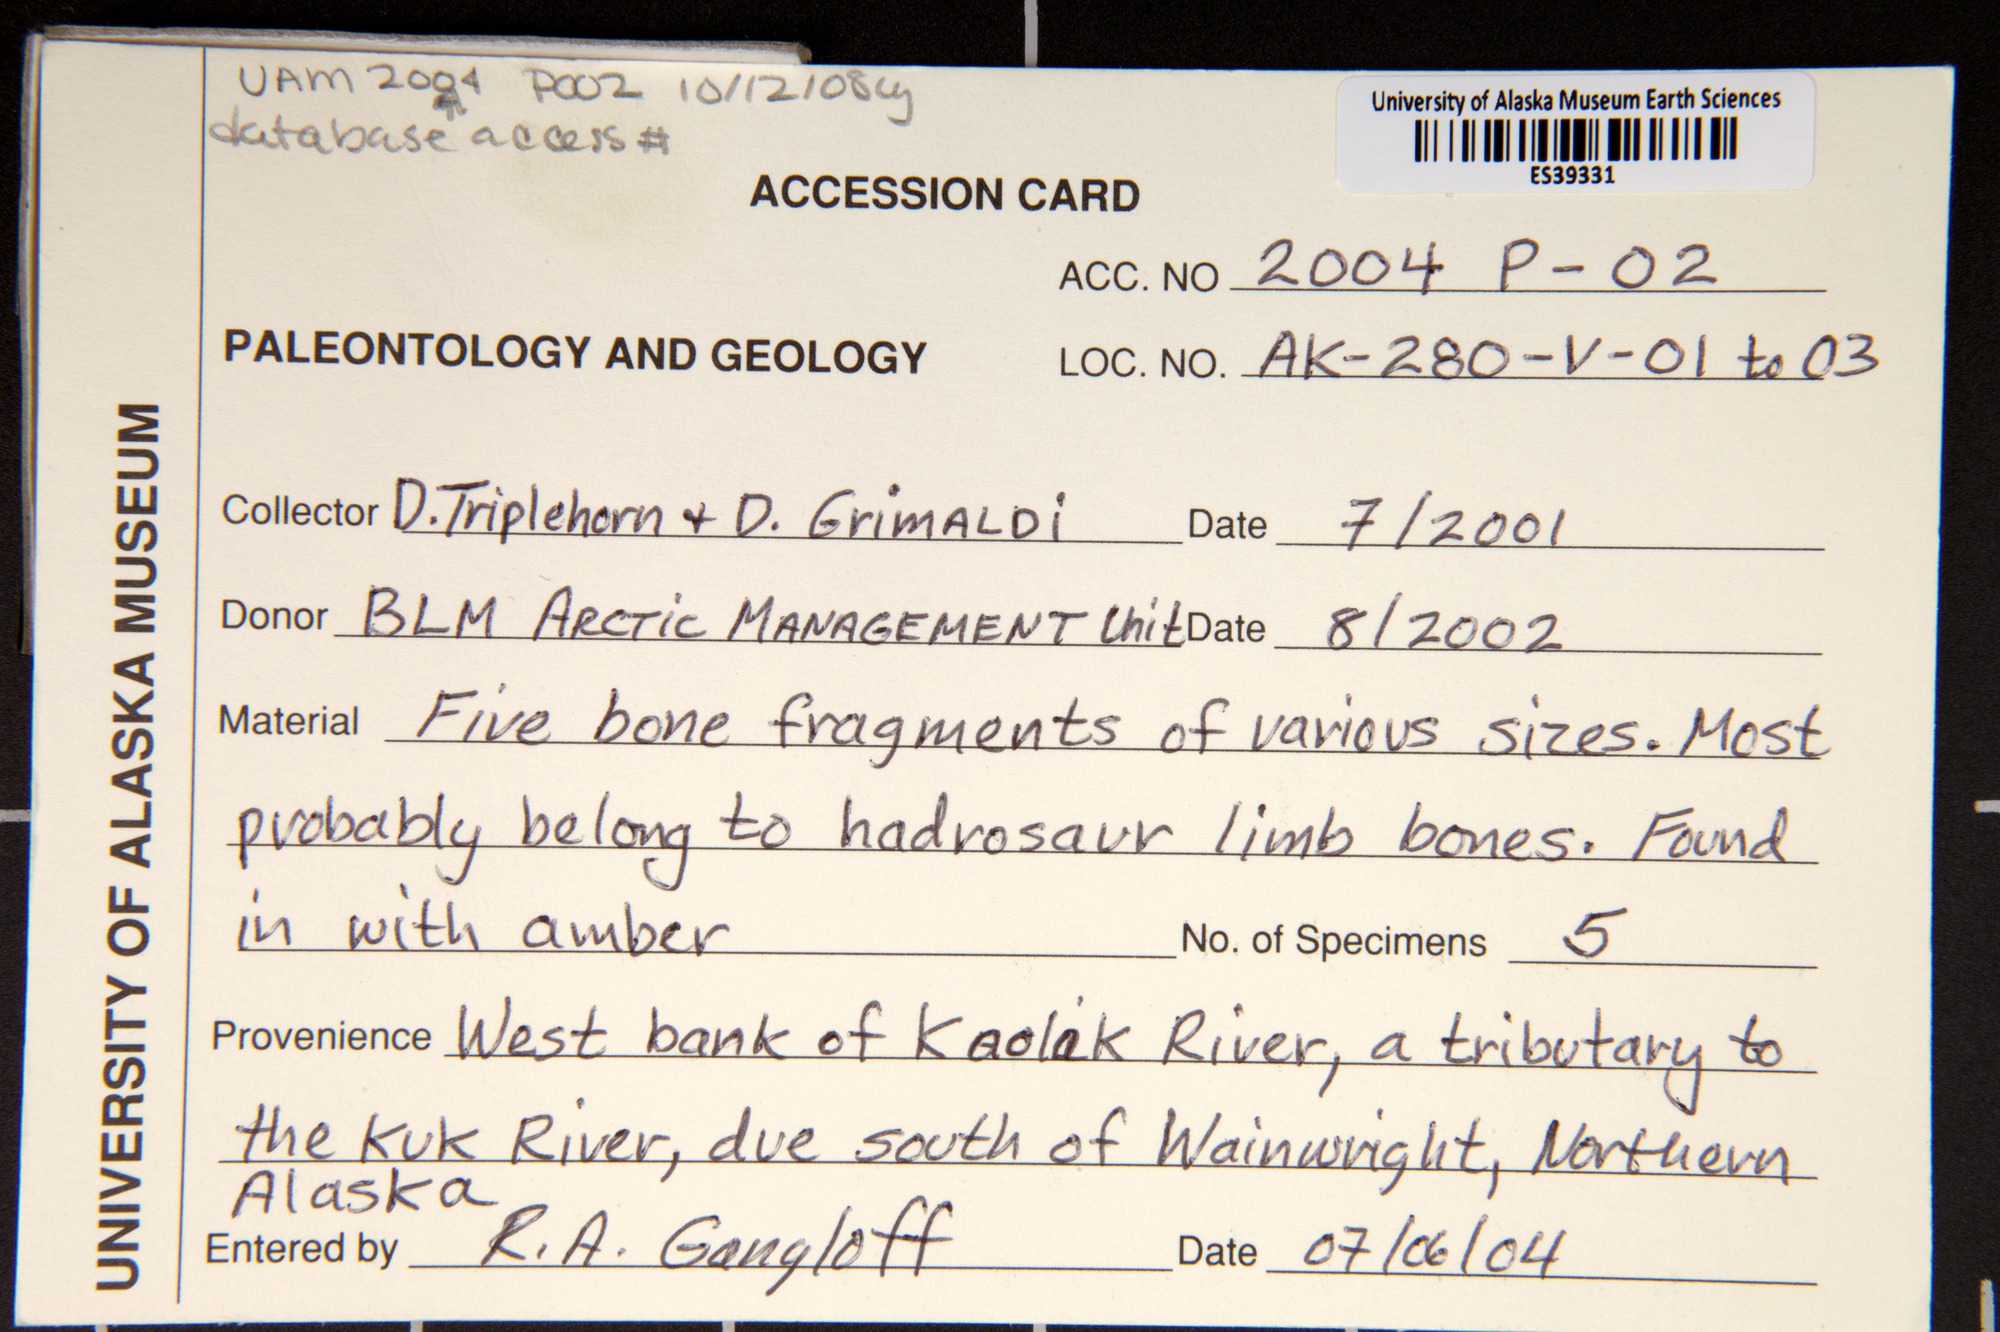 UAM 2004 P002 10/12/08
database access #
University of Alaska Museum Earth Sciences
ES39331
ACCESSION CARD
ACC. NO 2004 P-02
PALEONTOLOGY AND GEOLOGY
LOC. NO. AK-280-V-01 to 03
UNIVERSITY OF ALASKA MUSEUM
Collector D. Triplehorn + D. GRIMALDI Date 7/2001
Donor BLM ARCTIC MANAGEMENT Unit Date 8/2002
Material Five bone fragments of various sizes. Most
probably belong to hadrosaur limb bones. Found
in with amber No. of Specimens 5
Provenience West bank of Kaolak River, a tributary to
the Kuk River, due south of Wainwright, Northern
Alaska
Entered by R.A. Gangloff Date 07/06/04